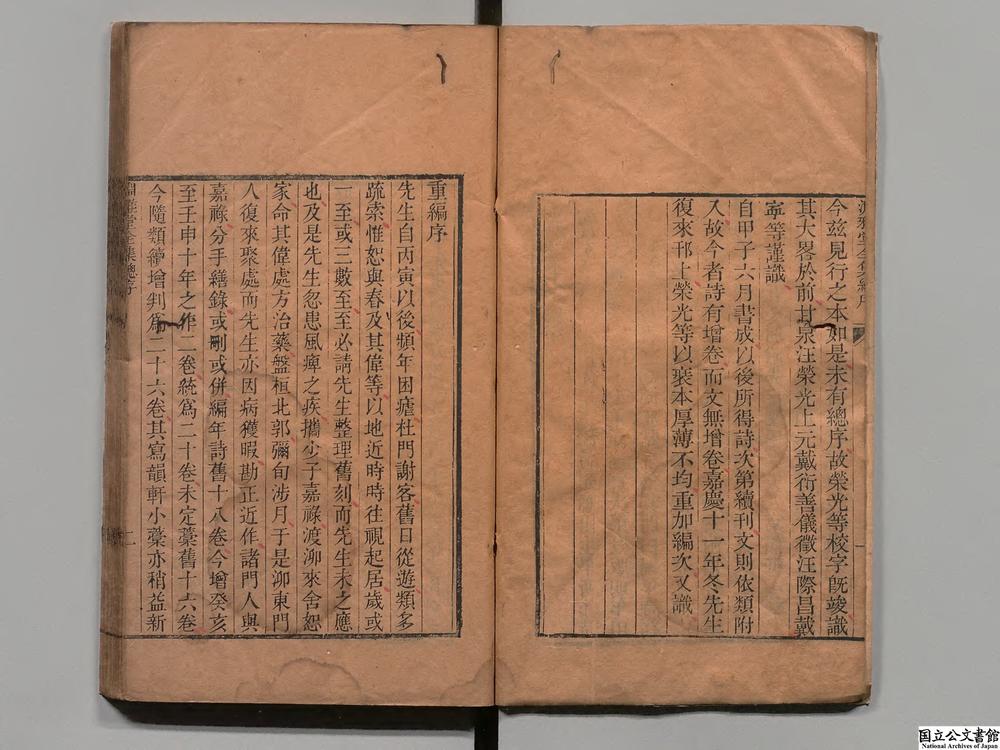 今茲見行之本如是未有總序故榮光等校字旣竣識
其大畧於前甘泉汪榮光上元戴衍善儀徵汪際昌戴
寧等謹識
自甲子六月書成以後所得詩次第續刊文則依類附
入故今者詩有增卷而文無增卷嘉慶十一年冬先生
復來邗上榮光等以袠本厚薄不均重加編次又識
一
重編序
先生自丙寅以後頻年困瘧杜門謝客舊日從遊類多
疏索惟恕與春及其偉等以地近時時往視起居歲或
一至或三數至至必請先生整理舊刻而先生未之應
也及是先生忽患風痺之疾攜少子嘉祿渡泖來舍恕
家命其偉處方治藥盤桓北郭彌旬涉月于是泖東門
人復來聚處而先生亦因病獲暇勘正近作諸門人與
嘉祿分手繕錄或刪或併編年詩舊十八卷今增癸亥
至壬申十年之作二卷統爲二十卷未定藁舊十六卷
今隨類續增判爲二十六卷其寫韻軒小藁亦稍益新
淵雅堂全集總序
二
国立公文書館
National Archives of Japan